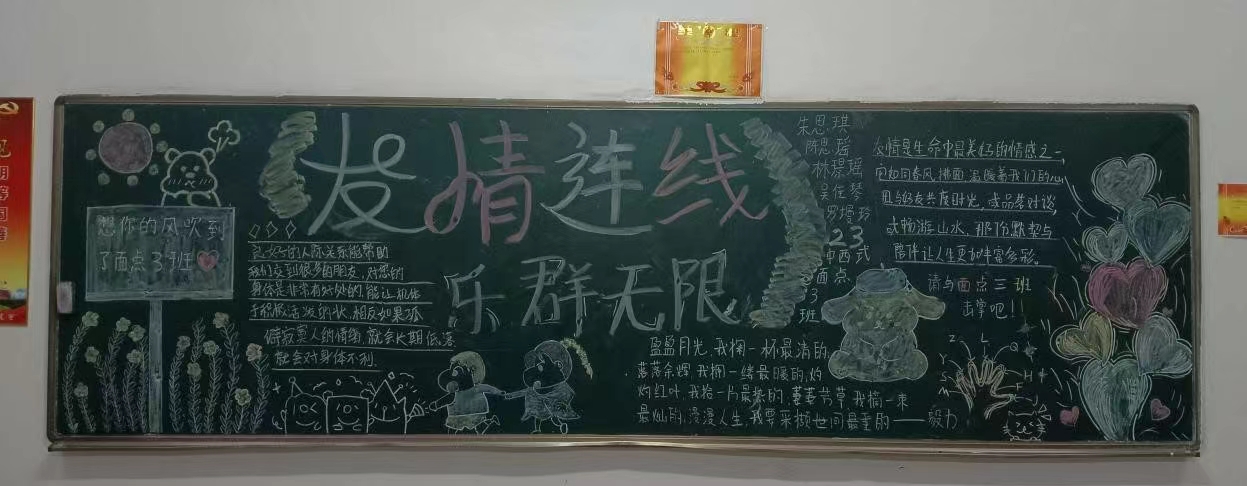 想你的风吹到
了面点3班
发情连线
乐群无限
良好的人际关系能帮助
我们交到很多的朋友,对您的
身体是非常有好处的,能让机体
于积极活发的状,相反如果孤
僻寂寞人的情绪,就会长期低落
就会对身体不利.
朱思琪
陈思瑶
林璟瑶
吴佳琴
23
中西式
面点
3
班
友情是生命中最美好的情感之一,
它如同春风拂面,温暖着我们的心
且与好友共度时光,或品茶对谈,
或畅游山水,那份默契与
陪伴让人生更加丰富多彩。
请与面点三班
击掌吧!!
盈盈月光,我掬一杯最清的,
落落余晖,我拥一缕最暖的,灼
灼红叶,我拾一片最热的,萋萋芳草,我摘一束
最灿的,漫漫人生,我要采撷世间最重的——毅力
Z L Q
Y
S H
F
J